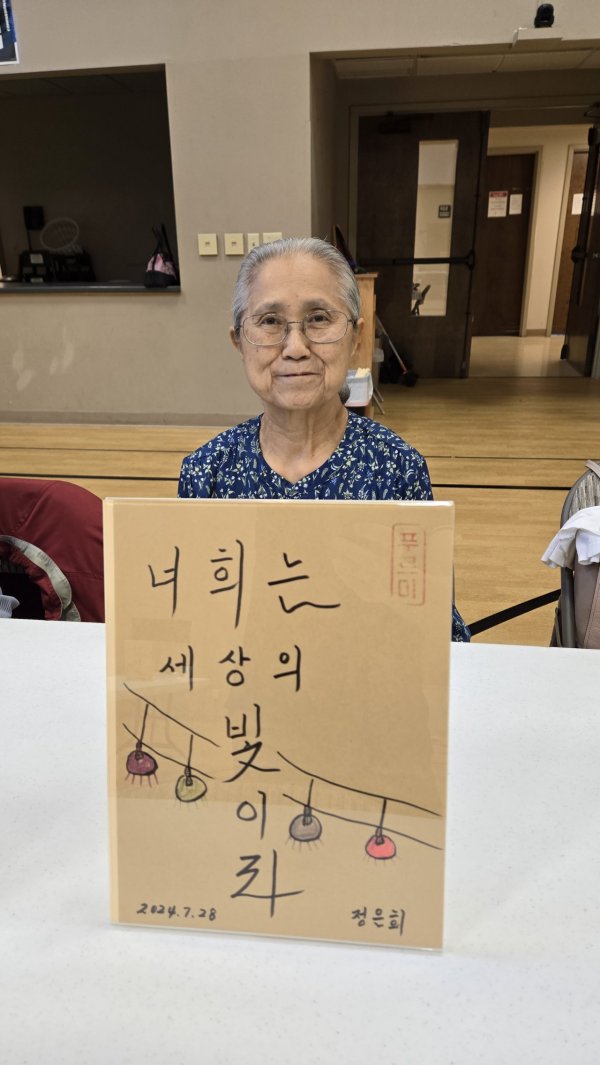 너희는
푸르미
세상의
빛
이
라
2024.7.28
정은희